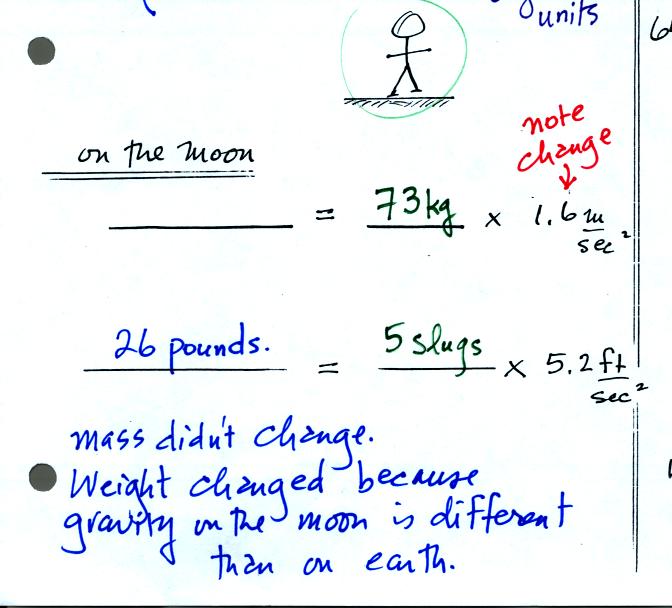 units
note
change
on the moon
= 73 kg × 1.6 m/sec²
26 pounds. = 5 slugs × 5.2 ft/sec²
mass didn't change.
Weight changed because
gravity on the moon is different
than on earth.